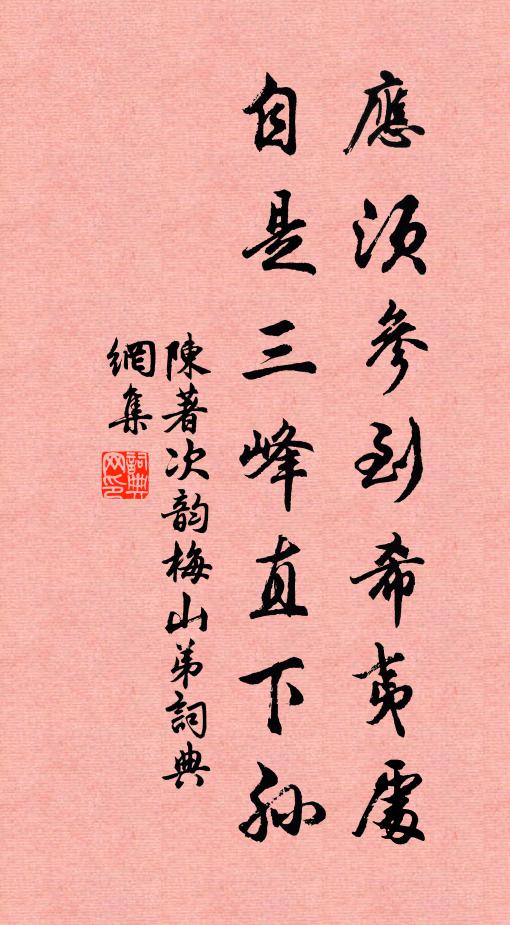 應須參到希夷處
自是三峰直下孫
陳著次韵梅山弟詞典
網集
詞典網印